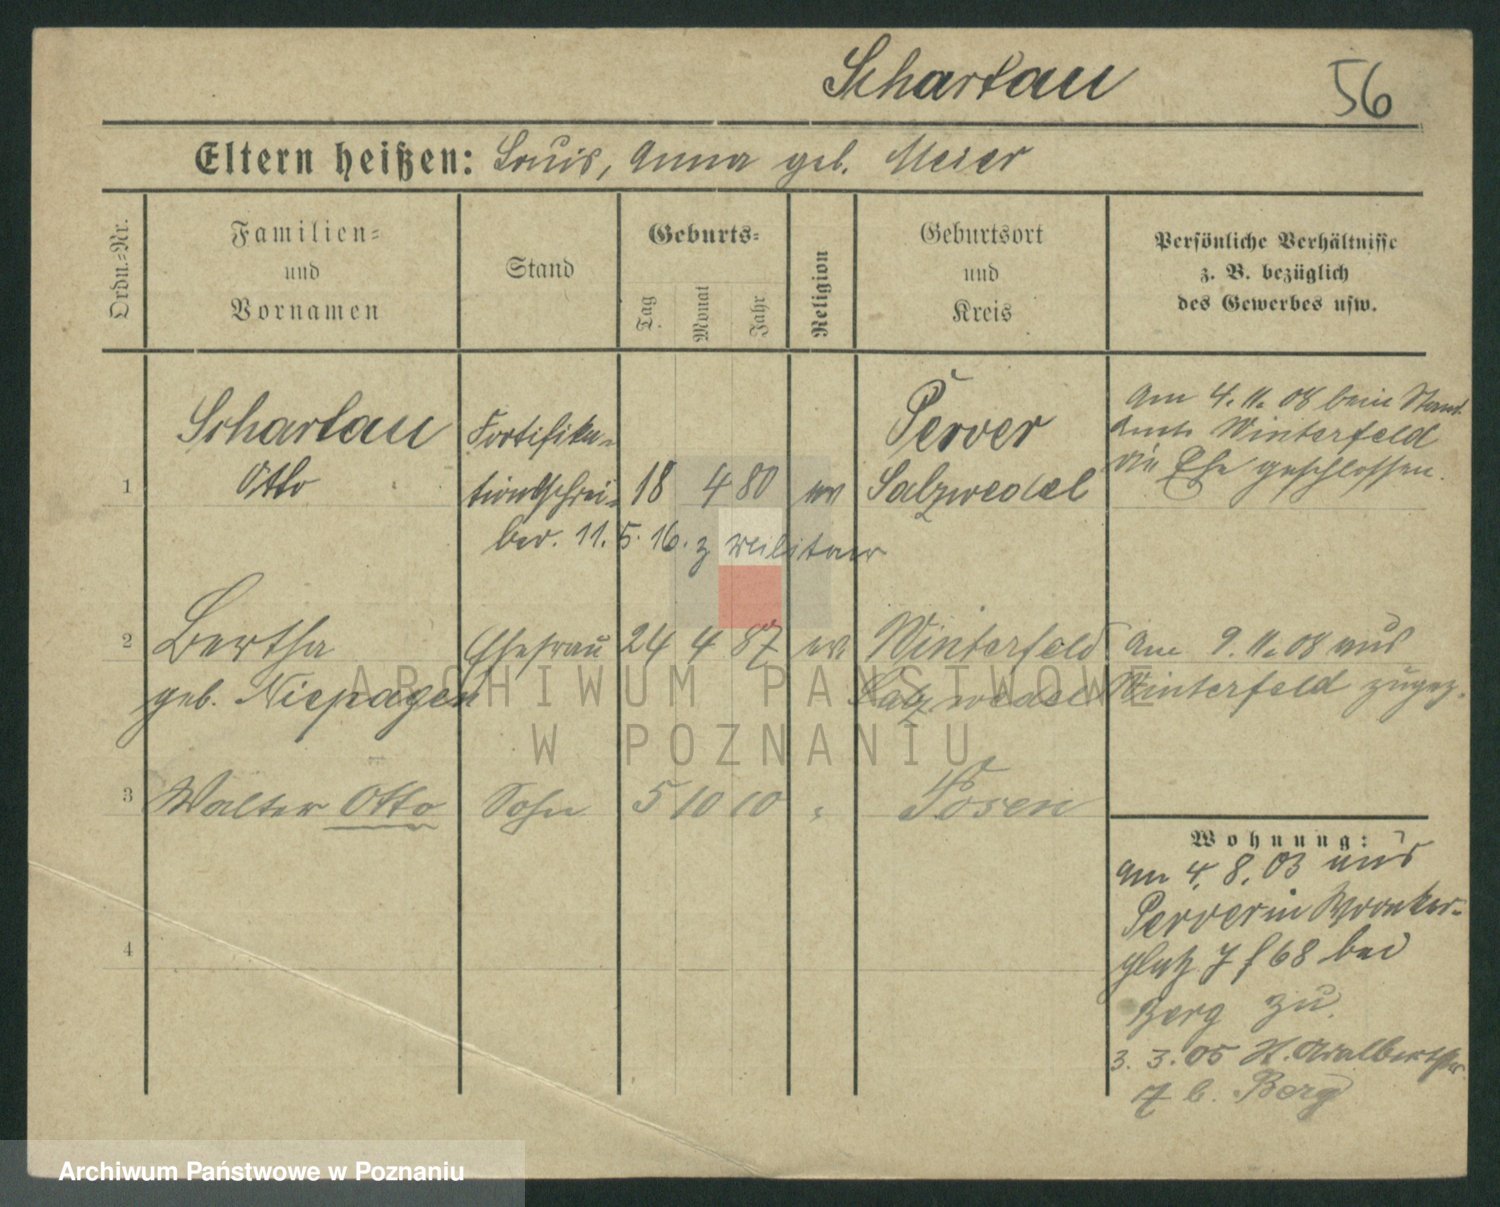 Schartau 56
Eltern heißen: Louis, Anna geb. Meier
Ordn.-Nr.
Familien- und Vornamen
Stand
Geburts-
Tag Monat Jahr
Religion
Geburtsort und Kreis
Persönliche Verhältnisse
z. B. bezüglich
des Gewerbes usw.
1 Schartau
Otto
Fortifika-
tionsschrei-
ber. 11. 5. 16. z Militär
18 4 80 ev
Perver
Salzwedel
Am 4. 11. 08 beim Stand.
amte Winterfeld
die Ehe geschlossen.
2 Bertha
geb. Niepagen
Ehefrau 24 4 87 ev
Winterfeld
Salzwedel
Am 9. 11. 08 aus
Winterfeld zugez.
3 Walter Otto Sohn 5 10 10 " Posen
4
Wohnung:
Am 4. 8. 03 aus
Perver in Wronker-
platz 7 f 68 bei
Berg zu.
3. 3. 05 St. Adalbertstr.
7 b. Berg
ARCHIWUM PAŃSTWOWE
W POZNANIU
Archiwum Państwowe w Poznaniu